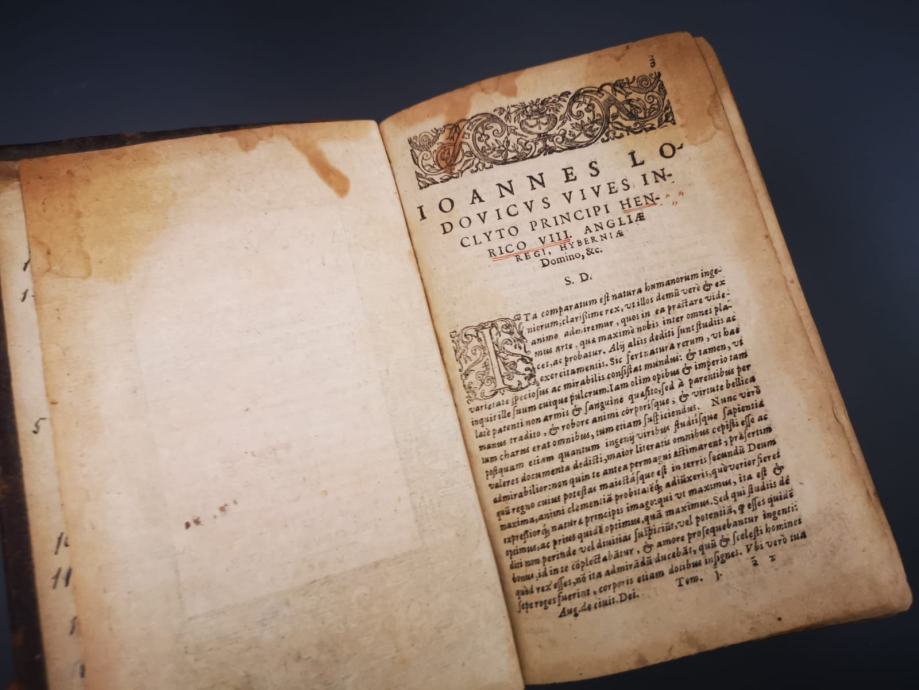 3
IOANNES LO-
DOVICVS VIVES IN-
CLYTO PRINCIPI HEN-
RICO VIII. ANGLIÆ
REGI, HYBERNIÆ
Domino, &c.
S. D.
ITa comparatum est natura humanorum inge-
niorum, clarissime rex, vt illos demũ verè & ex
animo admiremur, quos in ea præstare vide-
mus arte, quæ maximè nobis inter omnes pla-
ces, ac probatur. Alij alijs dediti sunt studiis ac
exercitamentis. Sic fert natura rerum, vt hac
varietate speciosus ac mirabilis consistat mundus: & tamen, vt
inquit ille suum cuique pulcrum. Iam olim opibus & imperio tam
latè patenti non armis & sanguine quæsito, sed à parentibus per
manus tradito, & robore animi córporisque, & virtute bellica
tum charus erat omnibus, tum etiam suspiciendus. Nunc verò
postquam etiam quantum ingenij viribus studiisque sapientiæ
valeres documenta dedisti, maior literatis omnibus cepisti esse ac
admirabilior: non quin te antea permagni æstimarent, præsertim
quũ regno cuius potestas maiestásque est in terris secundũ Deum
maxima, animi clementiã probitatẽq; adiũxeris, quò verior fieret
expressiorq; natura principis imago: qui vt maximus, ita est &
optimus, ac prius quidẽ optimus, quã maximus. Sed qui studiis de
diti non perinde vel diuitias suspiciũt, vel potentiã, q̃ esses quidẽ
bonus, id in te cõplectabãtur, & amore prosequebantur ingenti:
quòd rex esses, nõ ita admirãdũ ducebãt, quũ & scelesti homines
sæpe reges fuerint, corporis etiam dotibus insignes. Vbi verò tua
Aug. de ciuit. Dei. Tom. 1. a 2